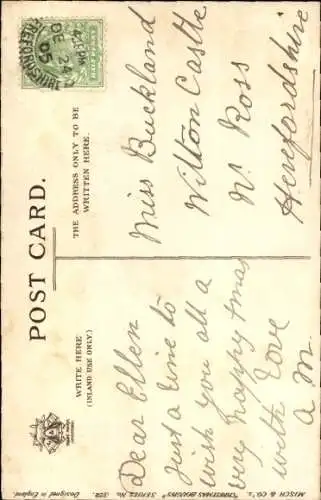 POST CARD.
WRITE HERE
(INLAND USE ONLY)
THE ADDRESS ONLY TO BE
WRITTEN HERE.
HALFPENNY
DE 24
05
Dear Ellen
Just a line to
wish you all a
very happy Xmas
with love
a M.
Miss Buckland
Wilton Castle
Nr Ross
Herefordshire
MISCH & CO'S. "CHRISTMAS BOUGHS" SERIES No. 352. Designed in England.